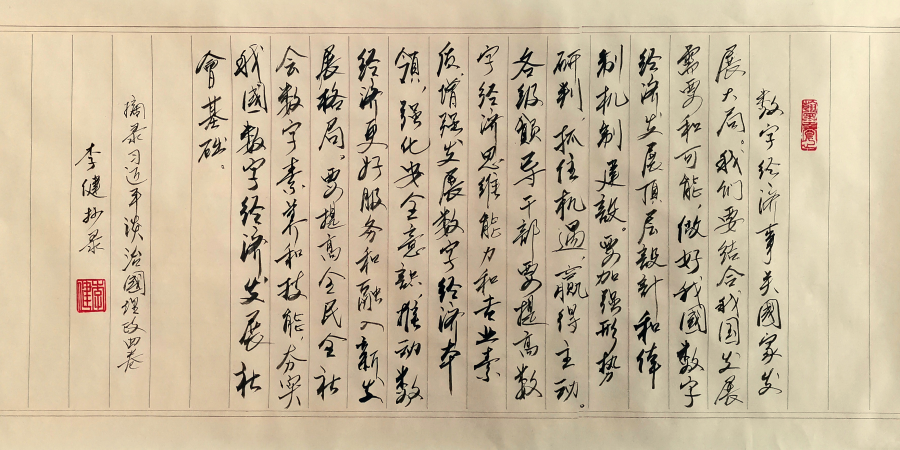 数字经济事关國家发
展大局。我们要结合我国发展
需要和可能，做好我國数字
经济发展顶层設计和体
制机制建設。要加强形势
研判，抓住机遇，赢得主动。
各级领导干部要提高数
字经济思维能力和专业素
质，增强发展数字经济本
领，强化安全意識，推动数
经济更好服务和融入新发
展格局。要提高全民全社
会数字素养和技能，夯实
我國数字经济发展社
會基础。
摘录习近平谈治國理政四卷
李健抄录
李健